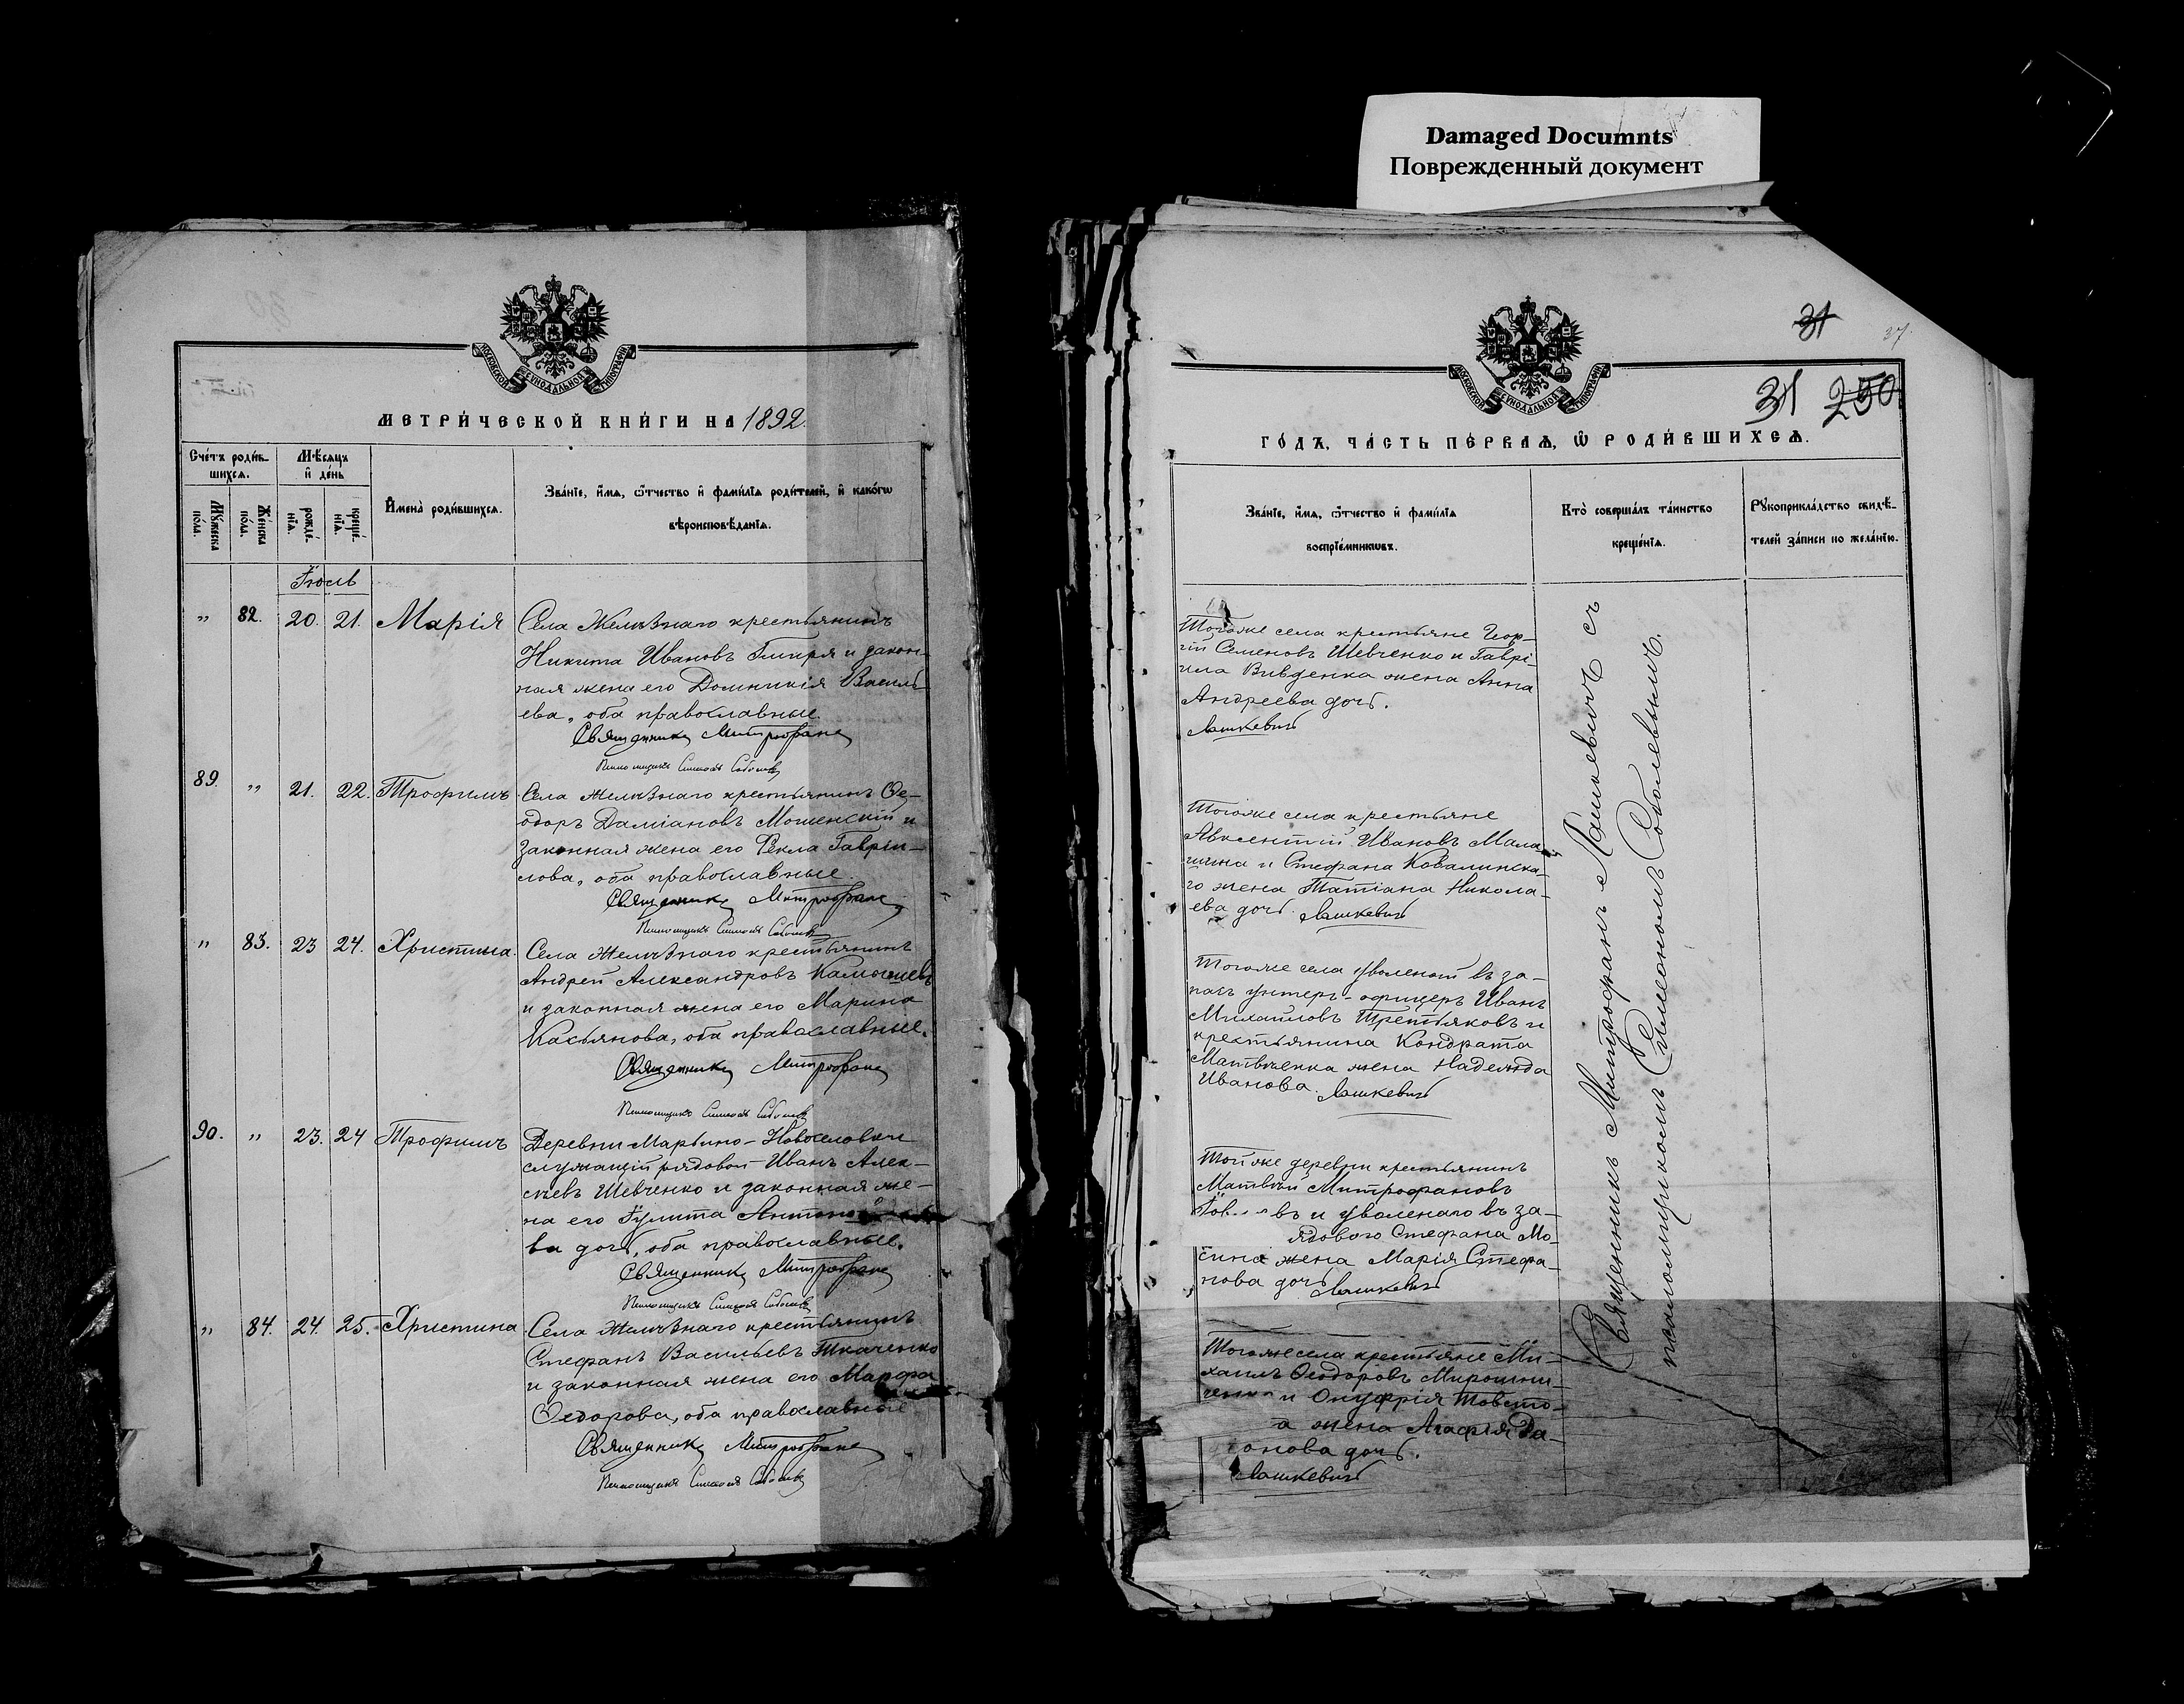 Damaged Documnts
Поврежденный документ
МОСКОВСКОЙ СѴНОДАЛЬНОЙ ТИПОГРАФІИ
МЕТРИ́ЧЕСКОЙ КНИ́ГИ НА 1892.
Сче́тъ роди́в-
шихсѧ.
Мꙋ́жеска по́ла.
Же́нска по́ла.
М҆ѣсѧцъ и҆ де́нь
рожде́-
нїѧ.
креще́-
нїѧ.
И҆мена̀ роди́вшихсѧ.
Зва́нїе, и҆́мѧ, ѻ҆́тчество и҆ фами́лїѧ роди́телей, и҆ како́гѡ
вѣроисповѣ́данїѧ.
Іюль
„ 82. 20. 21. Марія
Села Желѣзнаго крестьянинъ
Никита Ивановъ Гмиря и закон-
ная жена его Домникія Василь-
ева, оба православные.
Священникъ Митрофанъ
Псаломщикъ Симеонъ Соболевъ
89. „ 21. 22. Трофимъ
Села Желѣзнаго крестьянинъ Ѳе-
одоръ Даміановъ Мошенскій и
законная жена его Ѳекла Гаврии-
лова, оба православные.
Священникъ Митрофанъ
Псаломщикъ Симеонъ Соболевъ
„ 83. 23 24. Христина.
Села Желѣзнаго крестьянинъ
Андрей Александровъ
и законная жена его Марина
Касьянова, оба православные.
Священникъ Митрофанъ
Псаломщикъ Симеонъ Соболевъ
90. „ 23. 24 Трофимъ
Деревни Марьино-Новоселовки
служащій рядовой Иванъ Алек-
сѣевъ Шевченко и законная же-
на его Іулита Антоно
ва дочь, оба православные.
Священникъ Митрофанъ
Псаломщикъ Симеонъ Соболевъ
„ 84. 24. 25. Христина
Села Желѣзнаго крестьянинъ
Стефанъ Васильевъ Ткаченко
и законная жена его Марфа
Ѳеодорова, оба православные
Священникъ Митрофанъ
Псаломщикъ Симеонъ Соболевъ
31 37.
31 250
МОСКОВСКОЙ СѴНОДАЛЬНОЙ ТИПОГРАФІИ
ГО́ДЪ, ЧА́СТЬ ПЕ́РВАѦ, Ѡ҆ РОДИ́ВШИХСѦ.
Зва́нїе, и҆́мѧ, ѻ҆́тчество и҆ фами́лїѧ
воспрїе́мникѡвъ.
Кто̀ соверша́лъ та́инство
креще́нїѧ.
Рꙋкоприкла́дство свидѣ́-
телей за́писи по жела́нїю.
Тогоже села крестьяне Геор-
гій Семеновъ Шевченко и Гаврі-
ила Вивденка жена Анна
Андреева дочь.
Лашкевичъ
Тогоже села крестьяне
Авксентій Ивановъ Мала
и Стефана Ковалинска-
го жена Татіана Никола-
ева дочь. Лашкевичъ
Тогоже села уволеной въ за-
пасъ унтеръ-офицеръ Иванъ
Михайловъ Третьяковъ и
крестьянина Кондрата
Матвѣенка жена Надежда
Иванова. Лашкевичъ
Той же деревни крестьянинъ
Матвѣй Митрофановъ
въ и уволенаго въ за-
рядового Стефана Мо-
сина жена Марія Стефа-
нова дочь Лашкевичъ
Тогоже села крестьяне Ми-
хаилъ Ѳеодоровъ Мирошни-
ченко и Онуфрія Товсто-
а жена Агафія
онова дочь.
Лашкевичъ
Священникъ Митрофанъ Лашкевичъ съ
псаломщикомъ Симеономъ Соболевымъ.